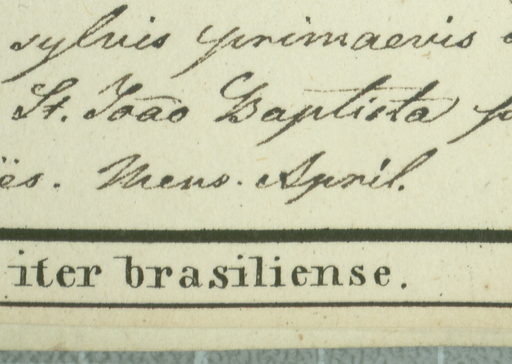 sylvis primaevis
St. João Baptista
ës. Mens. April.
iter brasiliense.